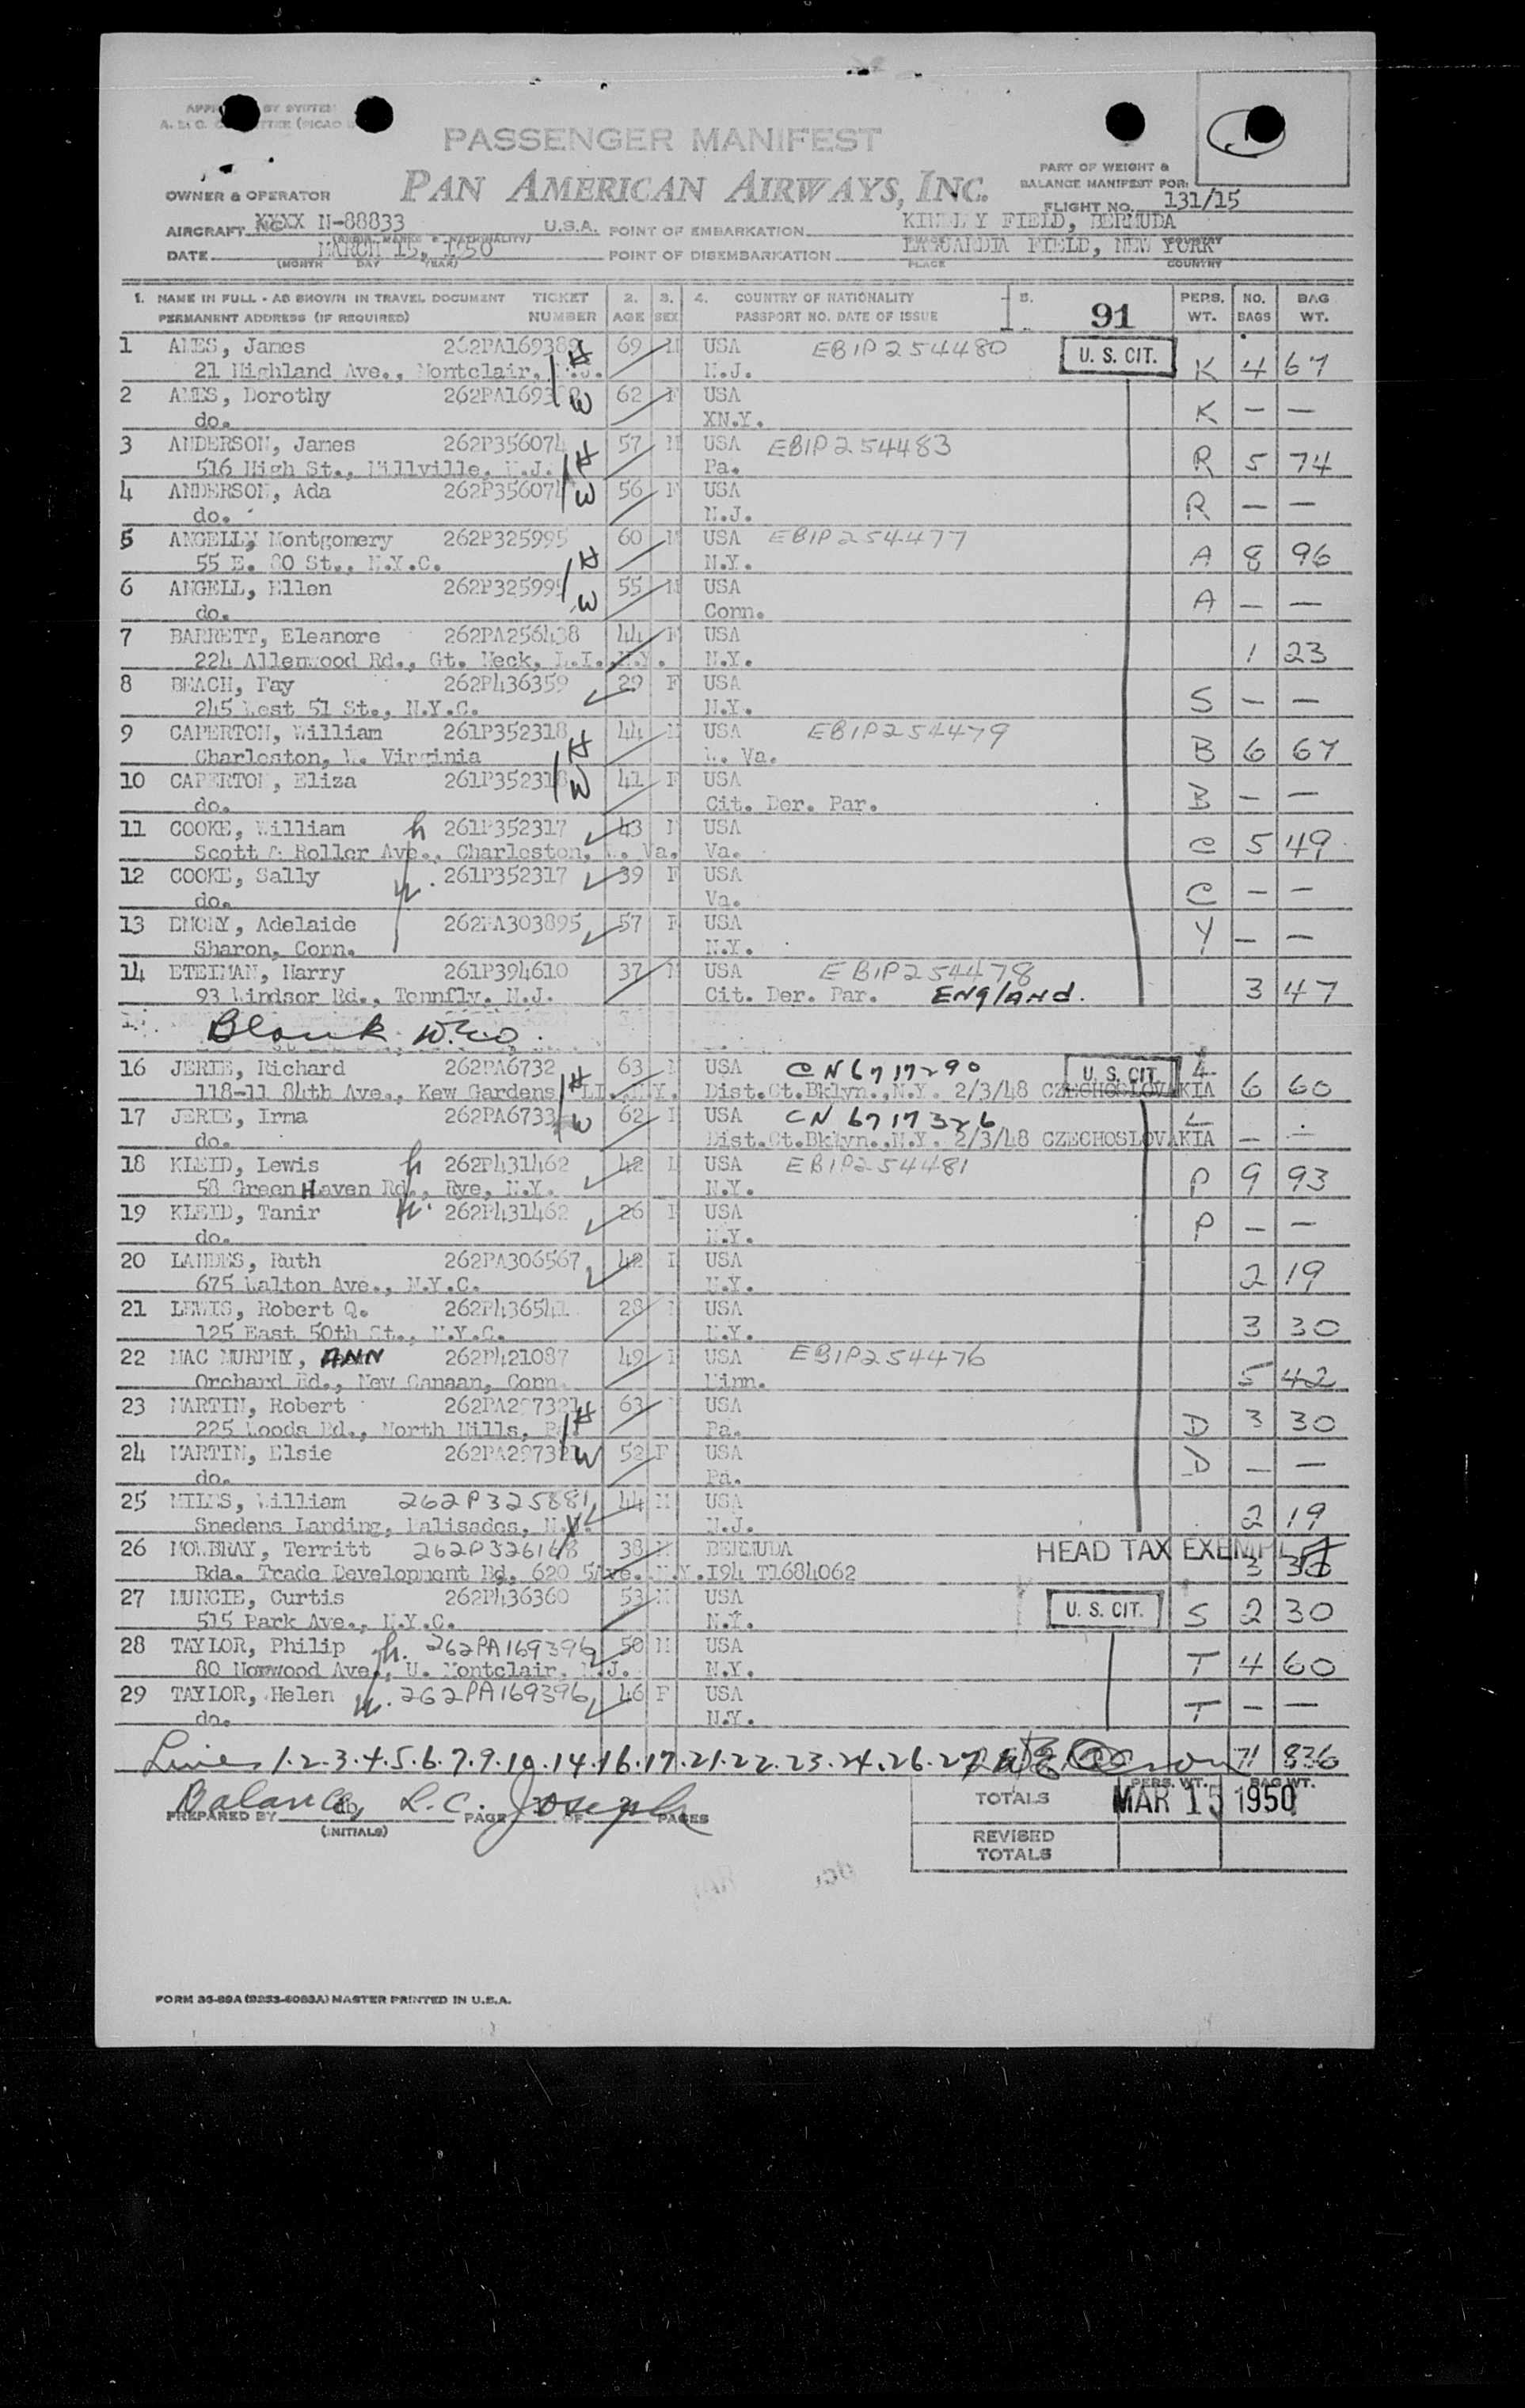 PASSENGER MANIFEST
PART OF WEIGHT &
BALANCE MANIFEST FOR:
OWNER & OPERATOR PAN AMERICAN AIRWAYS, INC.
FLIGHT NO. 131/15
AIRCRAFT N-88833 U.S.A. POINT OF EMBARKATION KINDLEY FIELD, BERMUDA
DATE MARCH 15, 1950 POINT OF DISEMBARKATION LAGUARDIA FIELD, NEW YORK
(MONTH DAY YEAR) PLACE COUNTRY
1. NAME IN FULL - AS SHOWN IN TRAVEL DOCUMENT TICKET 2. 3. 4. COUNTRY OF NATIONALITY 5. PERS. NO. BAG
PERMANENT ADDRESS (IF REQUIRED) NUMBER AGE SEX PASSPORT NO. DATE OF ISSUE 91 WT. BAGS WT.
1 AMES, James 262PA169388 69 M USA EBIP254480 U. S. CIT.
21 Highland Ave., Montclair, N.J. H N.J. K 4 67
2 AMES, Dorothy 262PA169388 W 62 F USA
do. XN.Y. K — —
3 ANDERSON, James 262P356074 57 M USA EBIP254483
516 High St., Millville, N.J. H Pa. R 5 74
4 ANDERSON, Ada 262P356074 W 56 F USA
do. N.J. R — —
5 ANGELL, Montgomery 262P325995 60 M USA EBIP254477
55 E. 80 St., N.Y.C. H N.Y. A 8 96
6 ANGELL, Ellen 262P325995 W 55 M USA
do. Conn. A — —
7 BARRETT, Eleanore 262PA256438 44 F USA
224 Allenwood Rd., Gt. Neck, L.I. N.Y. N.Y. 1 23
8 BEACH, Fay 262P436359 29 F USA
245 West 51 St., N.Y.C. N.Y. S — —
9 CAPERTON, William 261P352318 44 M USA EBIP254479
Charleston, W. Virginia H W. Va. B 6 67
10 CAPERTON, Eliza 261P352318 W 41 F USA
do. Cit. Der. Par. B — —
11 COOKE, William h 261P352317 43 M USA
Scott & Roller Ave., Charleston, W. Va. Va. C 5 49
12 COOKE, Sally w. 261P352317 39 F USA
do. Va. C — —
13 EMORY, Adelaide 262PA303895 57 F USA
Sharon, Conn. N.Y. Y — —
14 ETEIMAN, Harry 261P394610 37 M USA EBIP254478
93 Windsor Rd., Tennfly, N.J. Cit. Der. Par. ENglANd. 3 47
Blank
16 JERIE, Richard 262PA6732 63 M USA CN6717290 U. S. CIT. L
118-11 84th Ave., Kew Gardens, LI. N.Y. H Dist.Ct.Bklyn.,N.Y. 2/3/48 CZECHOSLOVAKIA 6 60
17 JERIE, Irma 262PA6733 W 62 F USA CN 6717326 L
do. Dist.Ct.Bklyn.,N.Y. 2/3/48 CZECHOSLOVAKIA — —
18 KLEID, Lewis h 262P431462 42 M USA EBIP254481
58 Green Haven Rd., Rye, N.Y. N.Y. P 9 93
19 KLEID, Tanir w. 262P431462 26 F USA
do. N.Y. P — —
20 LANDES, Ruth 262PA306567 42 F USA
675 Walton Ave., N.Y.C. N.Y. 2 19
21 LEWIS, Robert Q. 262P436541 28 M USA
125 East 50th St., N.Y.C. N.Y. 3 30
22 MAC MURPHY, ANN 262P421087 49 F USA EBIP254476
Orchard Rd., New Canaan, Conn. Minn. 5 42
23 MARTIN, Robert 262PA297321 63 USA
225 Woods Rd., North Hills, Pa. H Pa. D 3 30
24 MARTIN, Elsie 262PA297321 W 52 F USA
do. Pa. D — —
25 MILES, William 262P325881 44 M USA
Snedens Landing, Palisades, N.Y. N.J. 2 19
26 MOWBRAY, Territt 262P326168 38 M BERMUDA HEAD TAX EXEMPT
Bda. Trade Development Bd. 620 5Ave. N.Y. I94 T1684062 3
27 MUNCIE, Curtis 262P436360 53 M USA U. S. CIT.
515 Park Ave., N.Y.C. N.Y. S 2 30
28 TAYLOR, Philip h. 262PA169396 50 M USA
80 Norwood Ave., U. Montclair, N.J. N.Y. T 4 60
29 TAYLOR, Helen w. 262PA169396 46 F USA
do. N.Y. T — —
Lines 1.2.3.4.5.6.7.9.10.14.16.17.21.22.23.24.26.27 71 836
Balance L.C. Joseph
PERS. WT. BAG WT.
TOTALS MAR 15 1950
PREPARED BY PAGE OF PAGES
(INITIALS)
REVISED
TOTALS
FORM 36-89A (9253-6083A) MASTER PRINTED IN U.S.A.